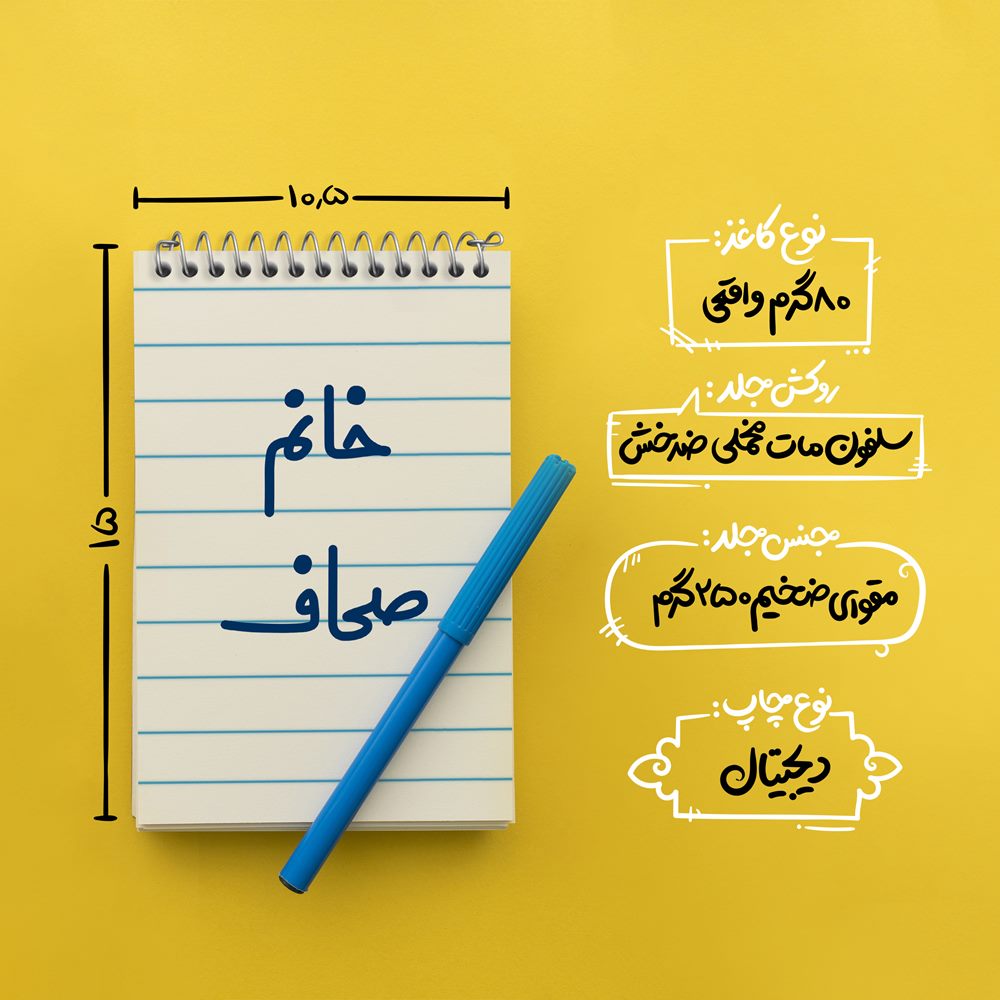 ۱۰٫۵
۱۵
خانم
صحاف
نوع کاغذ:
۸۰ گرم واقعی
روکش جلد:
سلفون مات مخملی ضدخش
جنس جلد:
مقوای ضخیم ۲۵۰ گرم
نوع چاپ:
دیجیتال